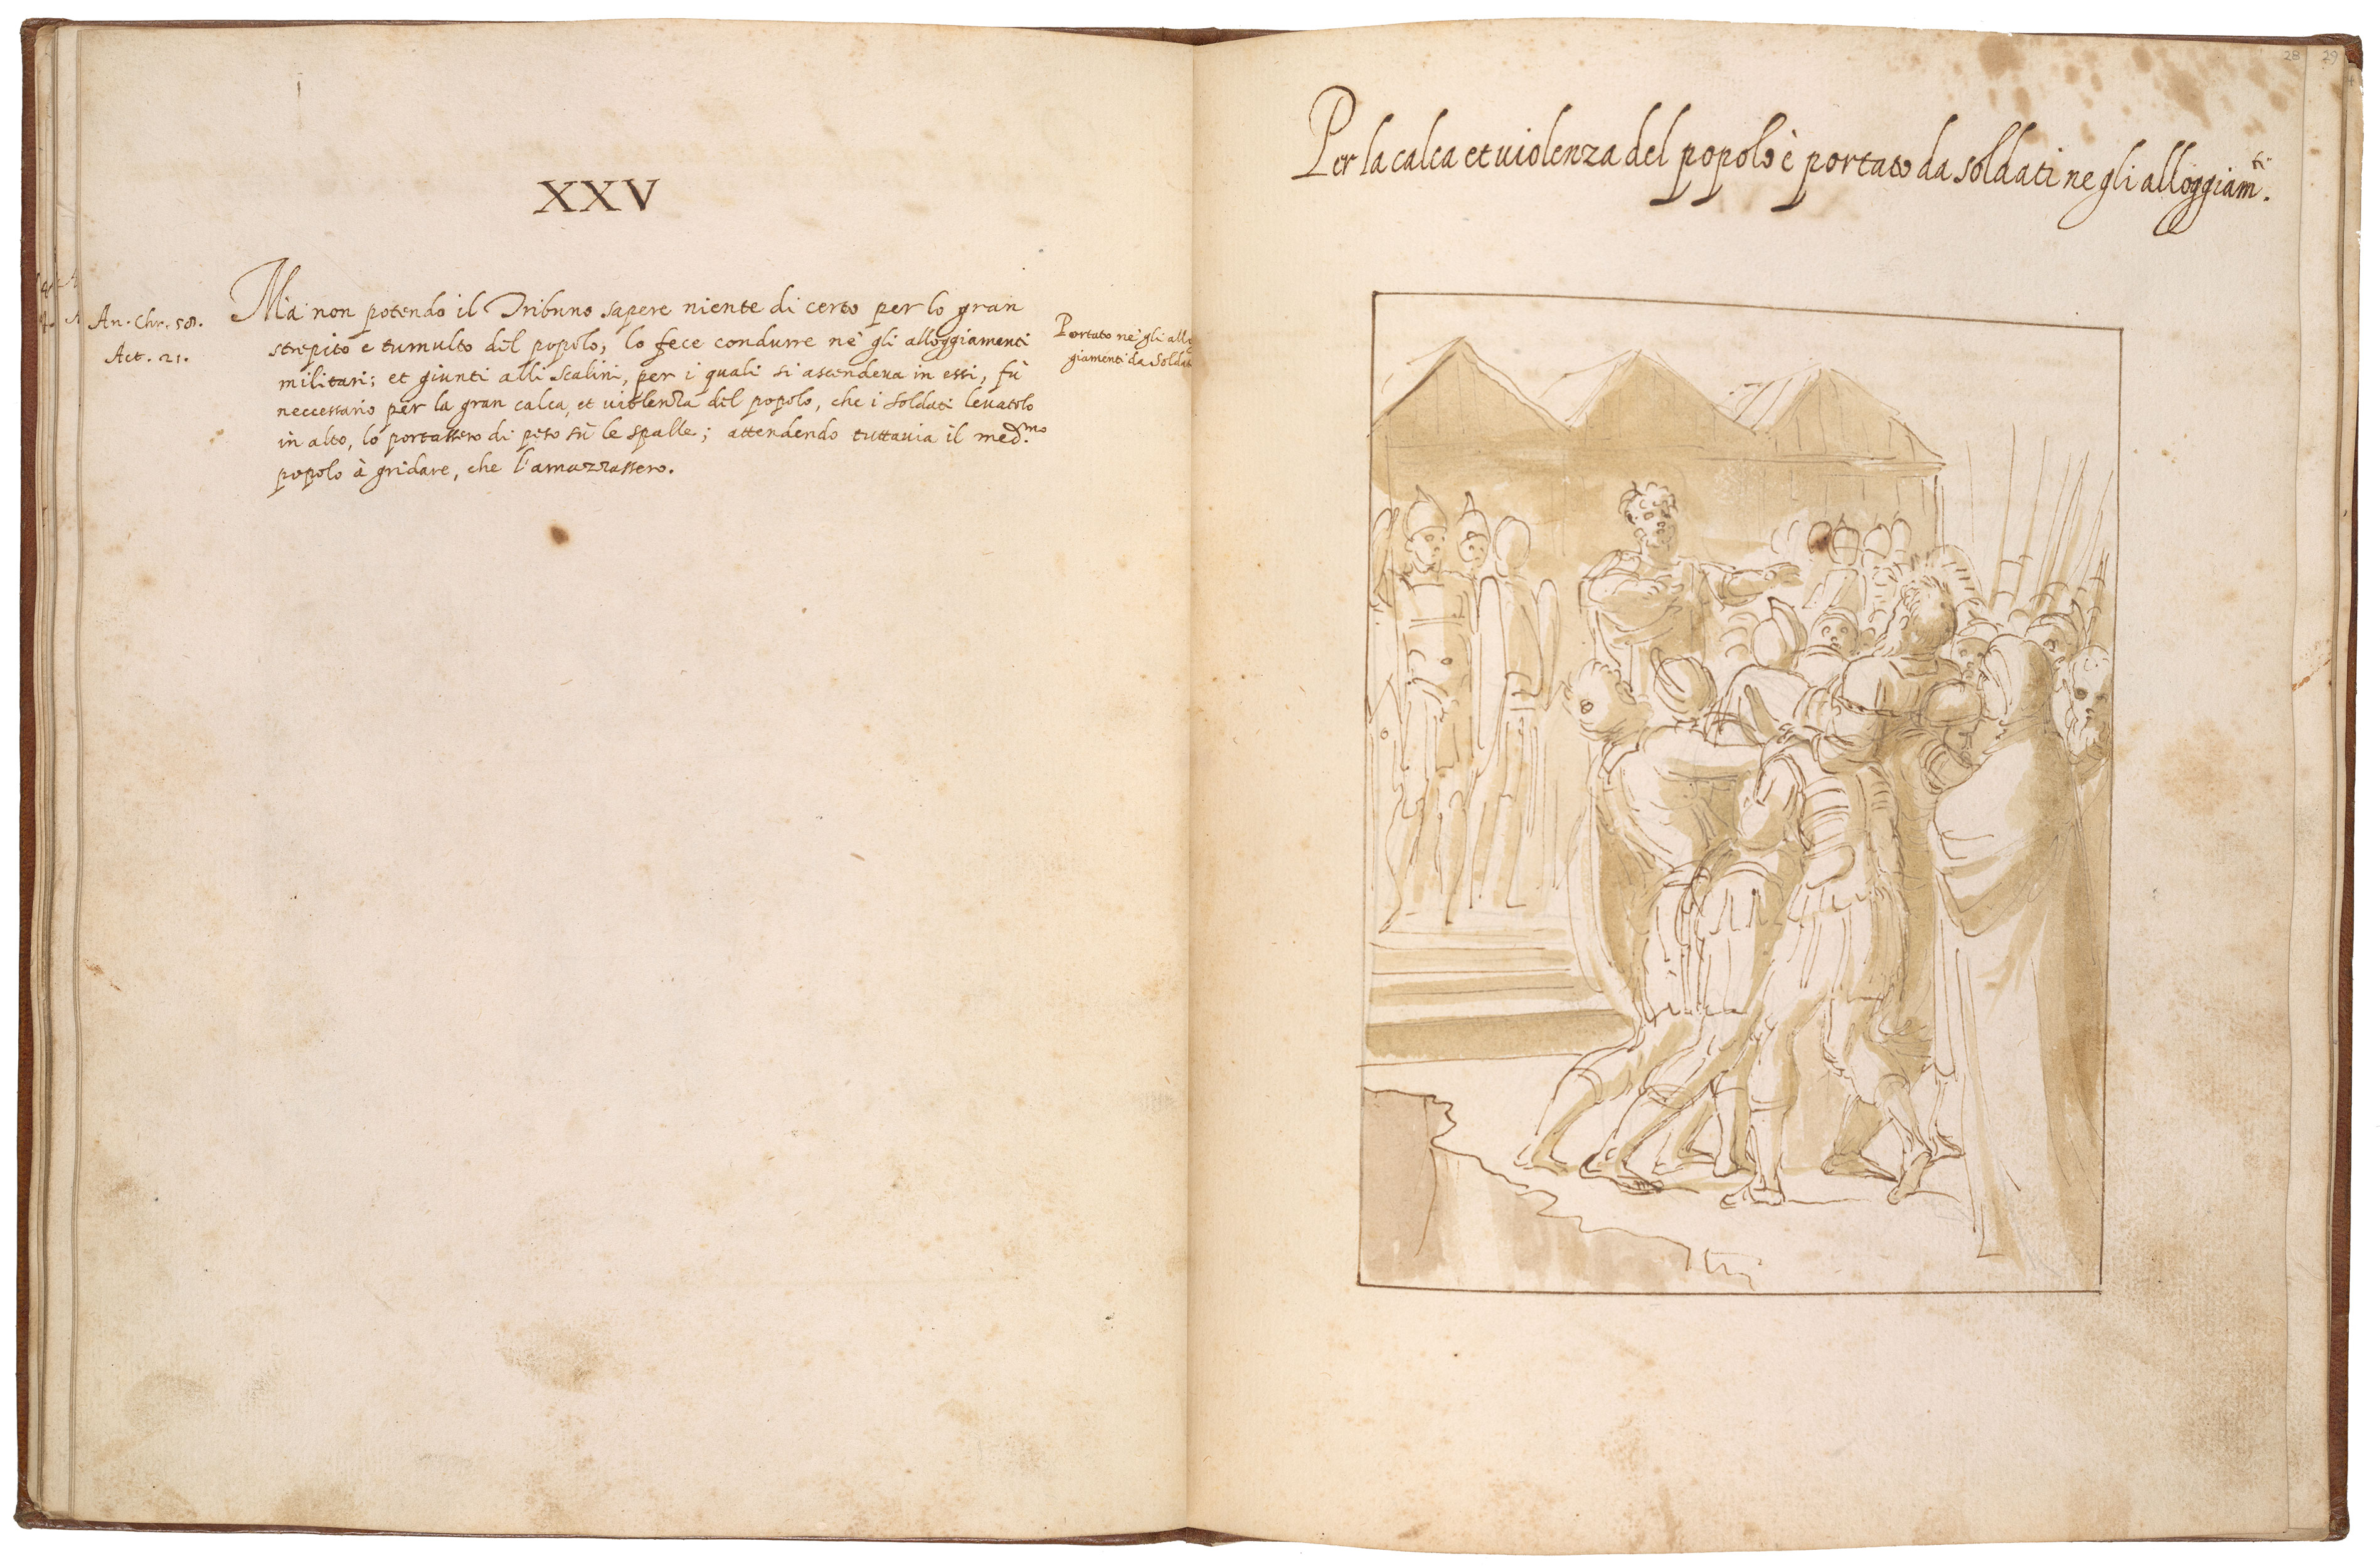 XXV
An. Chr. 58.
Act. 21.
Mà non potendo il Tribuno sapere niente di certo per lo gran
strepito e tumulto del popolo, lo fece condurre ne' gli alloggiamenti
militari; et giunti alli scalini, per i quali si ascendeva in essi, fù
neccessario per la gran calca, et violenza del popolo, che i soldati levatolo
in alto, lo portassero di peso sù le spalle; attendendo tuttavia il med.mo
popolo à gridare, che l'amazzassero.
Portato ne' gli allog
giamenti da Soldat
28 29
Per la calca et uiolenza del popolo è portato da soldati ne gli alloggiam.ti